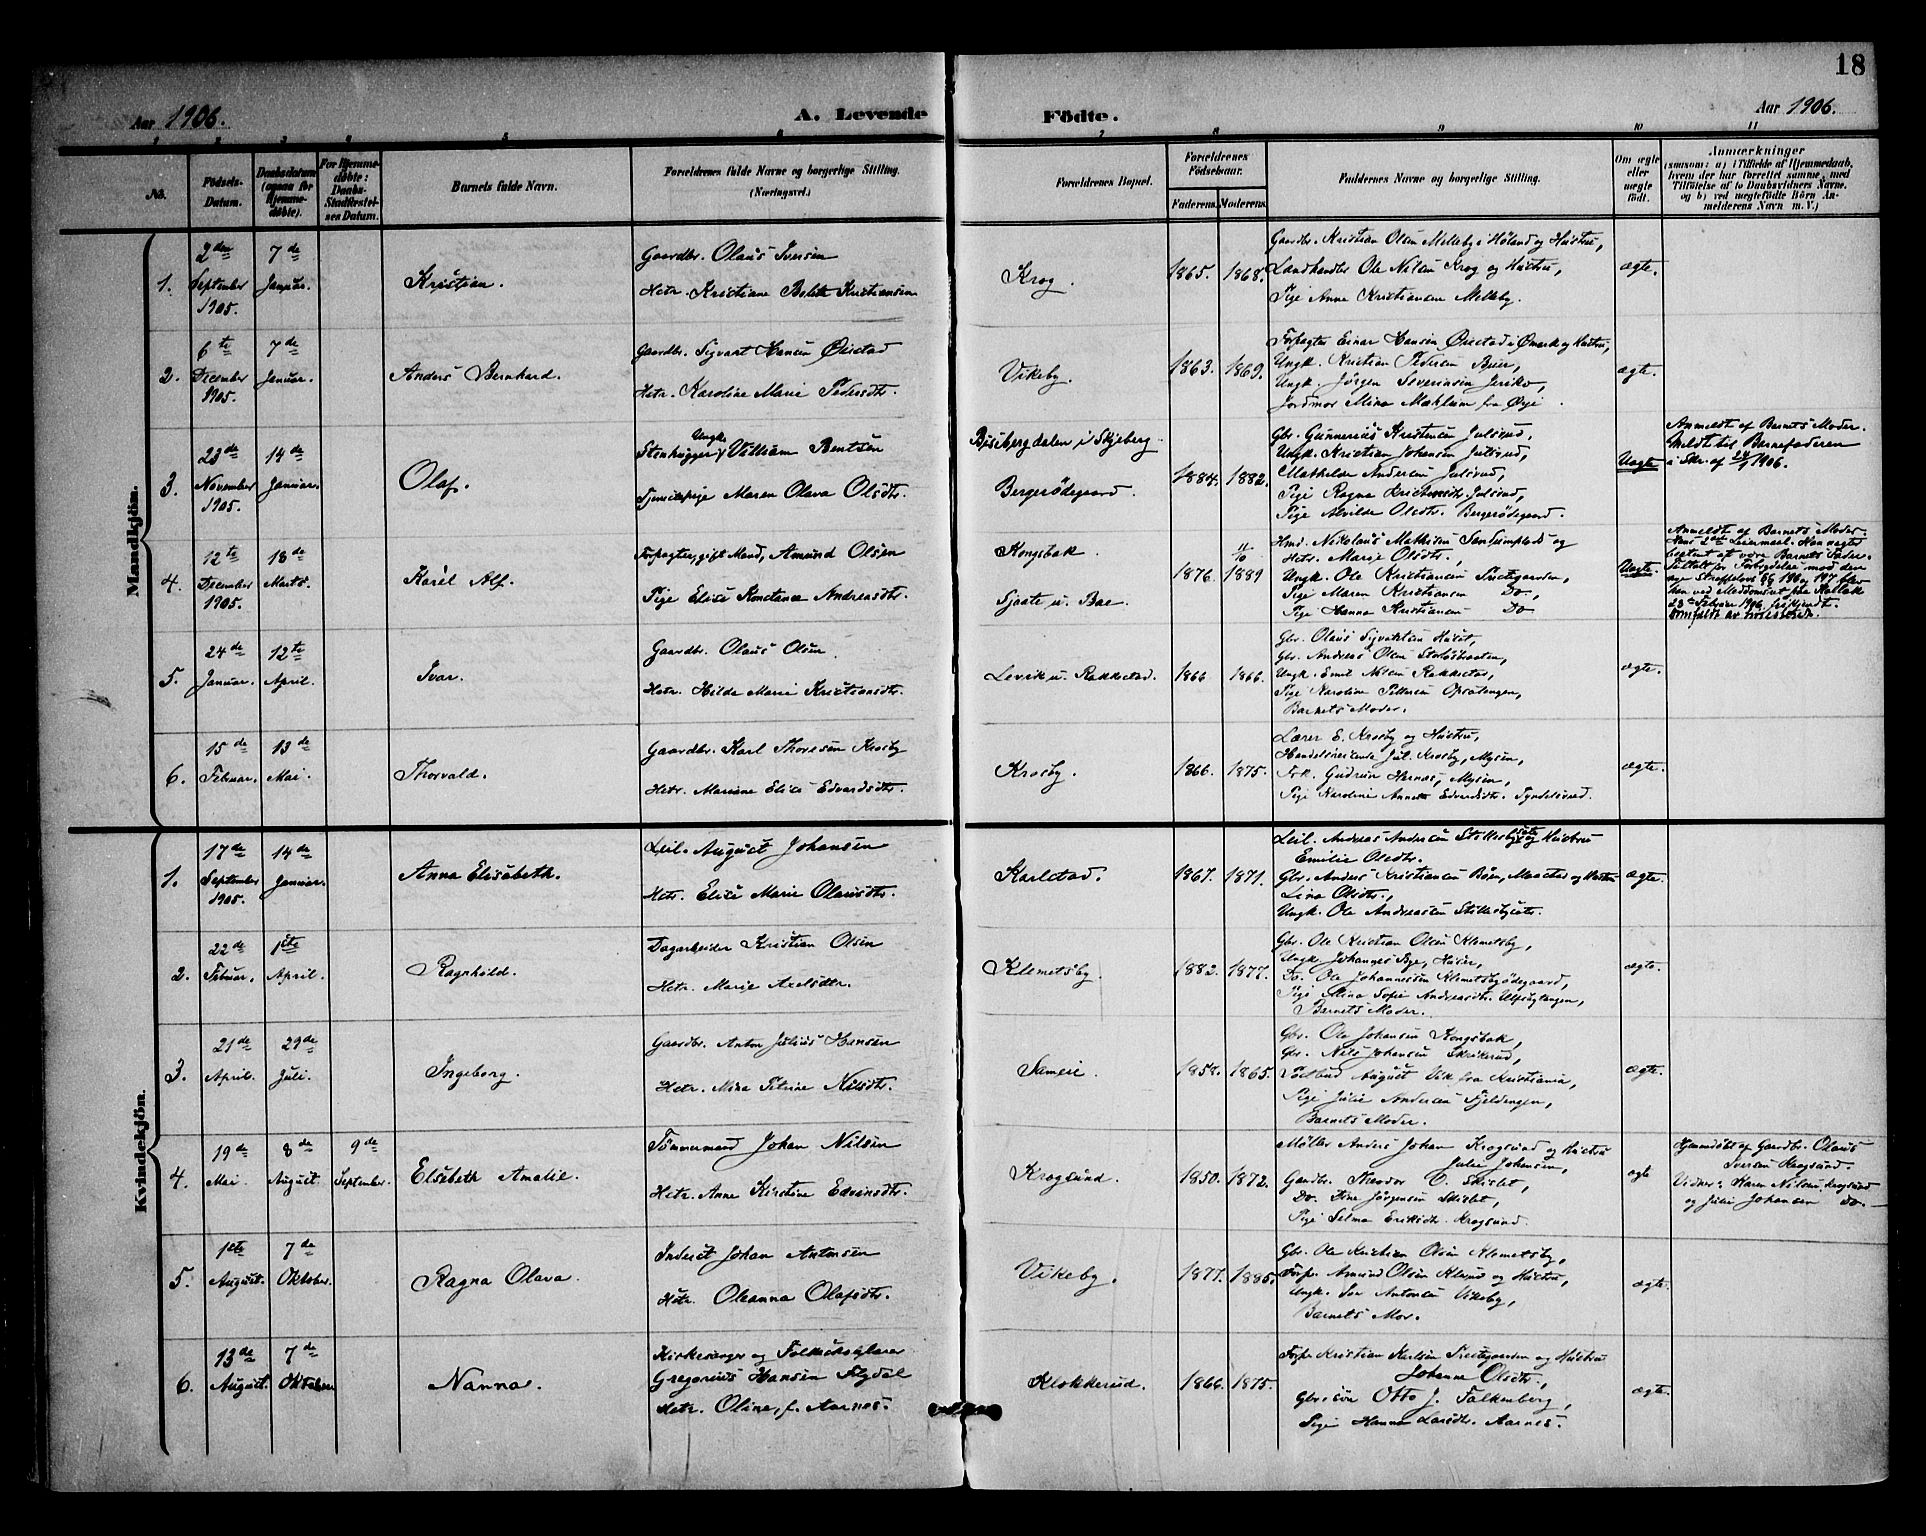 18
Aar 1906.
A. Levende
Födte.
Aar 1906.
1 2 3 4 5 6 7 8 9 10 11
No.
Födsels-
Datum.
Daabsdatum
(ogsaa for
Hjemme-
döbte).
For Hjemme-
döbte:
Daabs-
Stadfæstel-
ses Datum.
Barnets fulde Navn.
Forældrenes fulde Navne og borgerlige Stilling.
(Næringsvei.)
Forældrenes Bopæl.
Forældrenes
Födselsaar.
Faderens.
Moderens.
Faddernes Navne og borgerlige Stilling.
Om ægte
eller
uægte
födt.
Anmærkninger
(saasom: a) i Tilfælde af Hjemmedaab,
hvem der har forrettet samme, med
Tilföielse af to Daabsvidners Navne,
og b) ved uægtefödte Börn An-
melderens Navn m. V.)
Mandkjön.
1.
2den
September
1905.
7de
Januar.
Kristian.
Gaardbr. Olaus Iversen
Hstr. Kristiane Bolette Kristiansen
Krog.
1865.
1868.
Gaardbr. Kristian Olsen Melleby i Høland og Hustru,
Landhandler Ole Nilsen Krog og Hustru,
Pige Anne Kristiansen Melleby.
ægte.
2.
6te
December
1905.
7de
Januar.
Anders Bernhard.
Gaardbr. Sigvart Hansen Øiestad
Hstr. Karoline Marie Pedersdtr.
Vikeby.
1863.
1869.
Forpagter Einar Hansen Øiestad i Ømark og Hustru,
Ungk. Kristian Pedersen Buer,
Ungk. Jørgen Severinsen Jeriko,
Jordmor Mina Mæhlum fra Ørje.
ægte.
3.
23de
November
1905.
14de
Januar.
Olaf.
Ungk.
Stenhugger Villiam Bentsen
Tjenestepige Maren Olava Olsdtr.
Busebergdalen i Skjeberg.
Bergerødegaard.
1884.
1882.
Gbr. Gunnerius Kristensen Julsrud,
Ungk. Kristian Johansen Julsrud,
Mathilde Andersen Julsrud,
Pige Ragna Kristensdtr. Julsrud,
Pige Alvilde Olsdtr. Bergerødegaard.
Uægte
Anmeldt af Barnets Moder.
Meldt til Barnefaderen
i Skr. af 24/1 1906.
4.
12te
December
1905.
18de
Marts.
Karel Alf.
Forpagter, gift Mand, Amund Olsen
Pige Elise Konstance Andreasdtr.
Kongsbak.
Sjaate u. Boe.
1876.
11/10
1889
Hmd. Nikolaus Mathisen og
Hstr. Marie Olsdtr.,
Ungk. Ole Kristiansen Prestegaarden,
Pige Maren Kristiansen Do,
Pige Hanna Kristiansen Do
Uægte.
Anmeldt af Barnets Moder.
Hans 2det Leiermaal. Han nægter
bestemt at være Barnets Fader.
Tiltalt for Forbrydelse mod den
nye Straffelovs §§ 196 og 197 blev
han ved Meddomsret paa Kallak
23de Februar 1906 frikjendt.
5.
24de
Januar.
12te
April.
Ivar.
Gaardbr. Olaus Olsen
Hstr. Hilda Marie Kristiansdtr.
Levik u. Rakkestad.
1866
1866.
Gbr. Olaus Sigvaldsen Huset,
Gbr. Andreas Olsen Storløsbraaten,
Ungk. Emil Nilsen Rakkestad,
Pige Karoline Pettersen Opsatangen,
Barnets Moder.
ægte.
6.
15de
Februar.
13de
Mai.
Thorvald.
Gaardbr. Karl Thoresen Krosby
Hstr. Mariane Elise Edvardsdtr.
Krosby.
1866.
1875.
Lærer E. Krosby og Hustru,
Handelsreisende Jul. Krosby, Mysen,
Frk. Gudrun Hernæs, Mysen,
Pige Karoline Annette Edvardsdtr. Tyndelsrud.
ægte.
Kvindekjön.
1.
17de
September
1905.
14de
Januar.
Anna Elisabeth.
Leil. August Johansen
Hstr. Elise Marie Olausdtr.
Karlstad.
1867.
1871.
Leil. Andreas Andersen Stikkesbysate og Hustru
Emilie Olsdtr.
Gbr. Anders Kristiansen Bøen, Maastad og Hustru
Lina Olsdtr.,
Ungk. Ole Andreassen Stikkesbysate.
ægte.
2.
22de
Februar,
1ste
April.
Ragnhild.
Dagarbeider Kristian Olsen
Hstr. Marie Axelsdtr.
Klemetsby.
1882.
1877.
Gbr. Ole Kristian Olsen Klemetsby,
Ungk Johannes Bye, Huser,
Do. Ole Johannesen Klemetsbyødegaard,
Pige Mina Sofie Andreasdtr. Ulfsbytangen,
Barnets Moder.
ægte.
3.
21de
April.
29de
Juli.
Ingeborg.
Gaardbr. Anton Julius Hansen
Hstr. Mina Petrine Nilsdtr.
Sameie.
1858.
1865.
Gbr. Ole Johansen Kongsbak,
Gbr. Nils Johansen Skaikerud,
Postbud August Vik fra Kristiania,
Pige Julie Andersen Fjeldengen,
Barnets Moder.
ægte.
4.
19de
Mai.
8de
August
9de
September.
Elsebeth Amalie.
Tømmermand Johan Nilsen
Hstr. Anne Kirstine Edvinsdtr.
Krogsund.
1850.
1872.
Møller Anders Johan Krogsund og Hustru
Julie Johansen,
Gaardbr. Theodor O. Skislet,
Do. Fine Jørgensen Skislet,
Pige Selma Eriksdtr. Krogsund.
ægte
Hjemmedøbt af Gaardbr. Olaus
Iversen Krogsund.
Vidner: Karen Nilsen Krogsund
og Julie Johansen Do.
5.
1ste
August.
7de
Oktober.
Ragna Olava.
Inderst Johan Antonsen
Hstr. Oleanna Olafsdtr.
Vikeby.
1877.
1885.
Gbr. Ole Kristian Olsen Klemetsby,
Forp. Amund Olsen Klund og Hustru,
Ungk. Antonsen Vikeby,
Barnets Mor.
ægte.
6.
13de
August.
7de
Oktober
Nanna.
Kirkesanger og Folkeskolelærer
Gregorius Hansen Flydal
Hstr. Oline, f. Aarnes.
Klokkerud.
1866.
1875.
Forp. Kristian Karlsen Prestegaarden og Hustru
Johanne Olsdtr.,
Gbr.søn Otto J. Falkenberg,
Pige Hanna Larsdtr. Aarnes.
ægte.